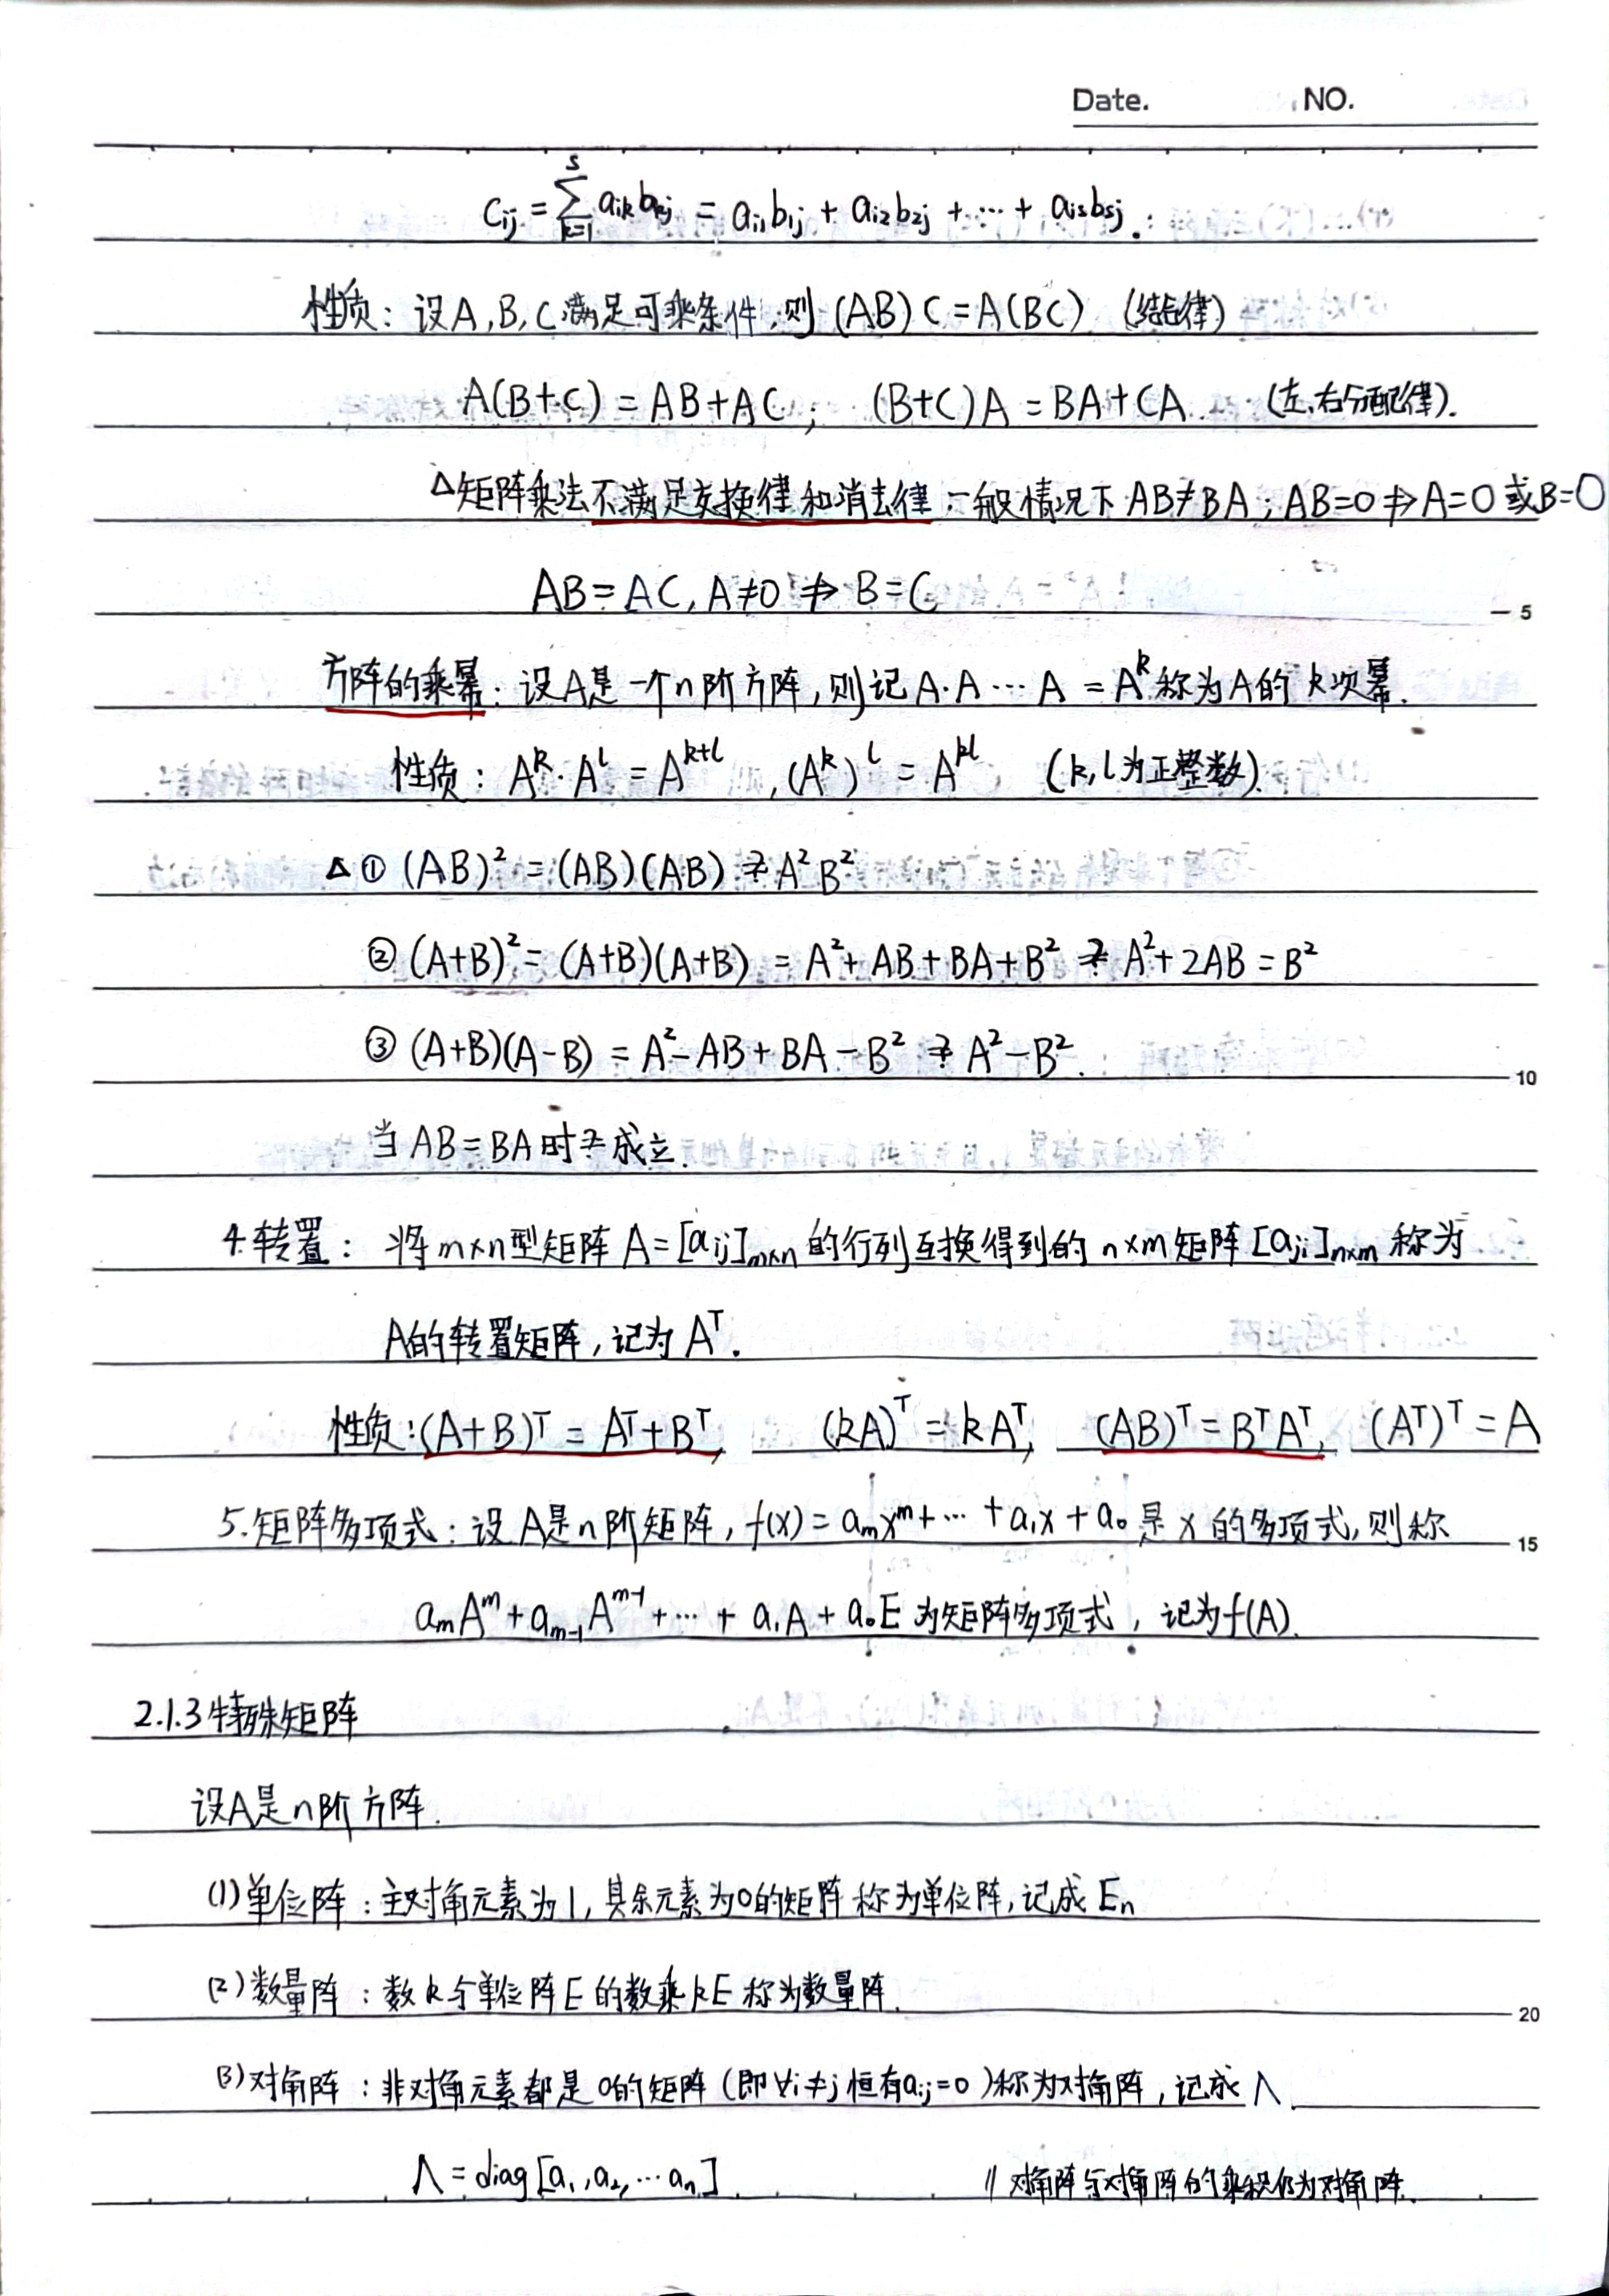 Date. NO.
c_{ij} = \sum_{k=1}^{s} a_{ik}b_{kj} = a_{i1}b_{1j} + a_{i2}b_{2j} + ⋯ + a_{is}b_{sj}.
性质：设A,B,C满足可乘条件,则 (AB)C=A(BC) (结合律)
A(B+C) = AB+AC; (B+C)A = BA+CA. (左、右分配律).
△矩阵乘法不满足交换律和消去律：一般情况下 AB≠BA; AB=0 ⇏ A=0 或B=0
AB=AC, A≠0 ⇏ B=C 5
方阵的乘幂：设A是一个n阶方阵,则记A·A⋯A = A^k 称为A的k次幂.
性质：A^k·A^l = A^{k+l}, (A^k)^l = A^{kl} (k,l为正整数).
△① (AB)² = (AB)(AB) ≠ A²B²
② (A+B)² = (A+B)(A+B) = A²+AB+BA+B² ≠ A²+2AB=B²
③ (A+B)(A-B) = A²-AB+BA-B² ≠ A²-B². 10
当AB=BA时才成立.
4.转置：将m×n型矩阵A=[a_{ij}]_{m×n}的行列互换得到的n×m矩阵[a_{ji}]_{n×m}称为
A的转置矩阵,记为A^T.
性质:(A+B)^T = A^T+B^T, (kA)^T = kA^T, (AB)^T = B^TA^T, (A^T)^T = A
5.矩阵多项式：设A是n阶矩阵, f(x) = a_mx^m+⋯+a_1x+a_0 是x的多项式,则称 15
a_mA^m+a_{m-1}A^{m-1}+⋯+a_1A+a_0E 为矩阵多项式, 记为f(A).
2.1.3特殊矩阵
设A是n阶方阵.
(1)单位阵：主对角元素为1,其余元素为0的矩阵称为单位阵,记成E_n
(2)数量阵：数k与单位阵E的数乘kE称为数量阵. 20
(3)对角阵：非对角元素都是0的矩阵(即∀i≠j恒有a_{ij}=0)称为对角阵,记成Λ.
Λ = diag[a_1,a_2,⋯a_n] // 对角阵与对角阵的乘积仍为对角阵.